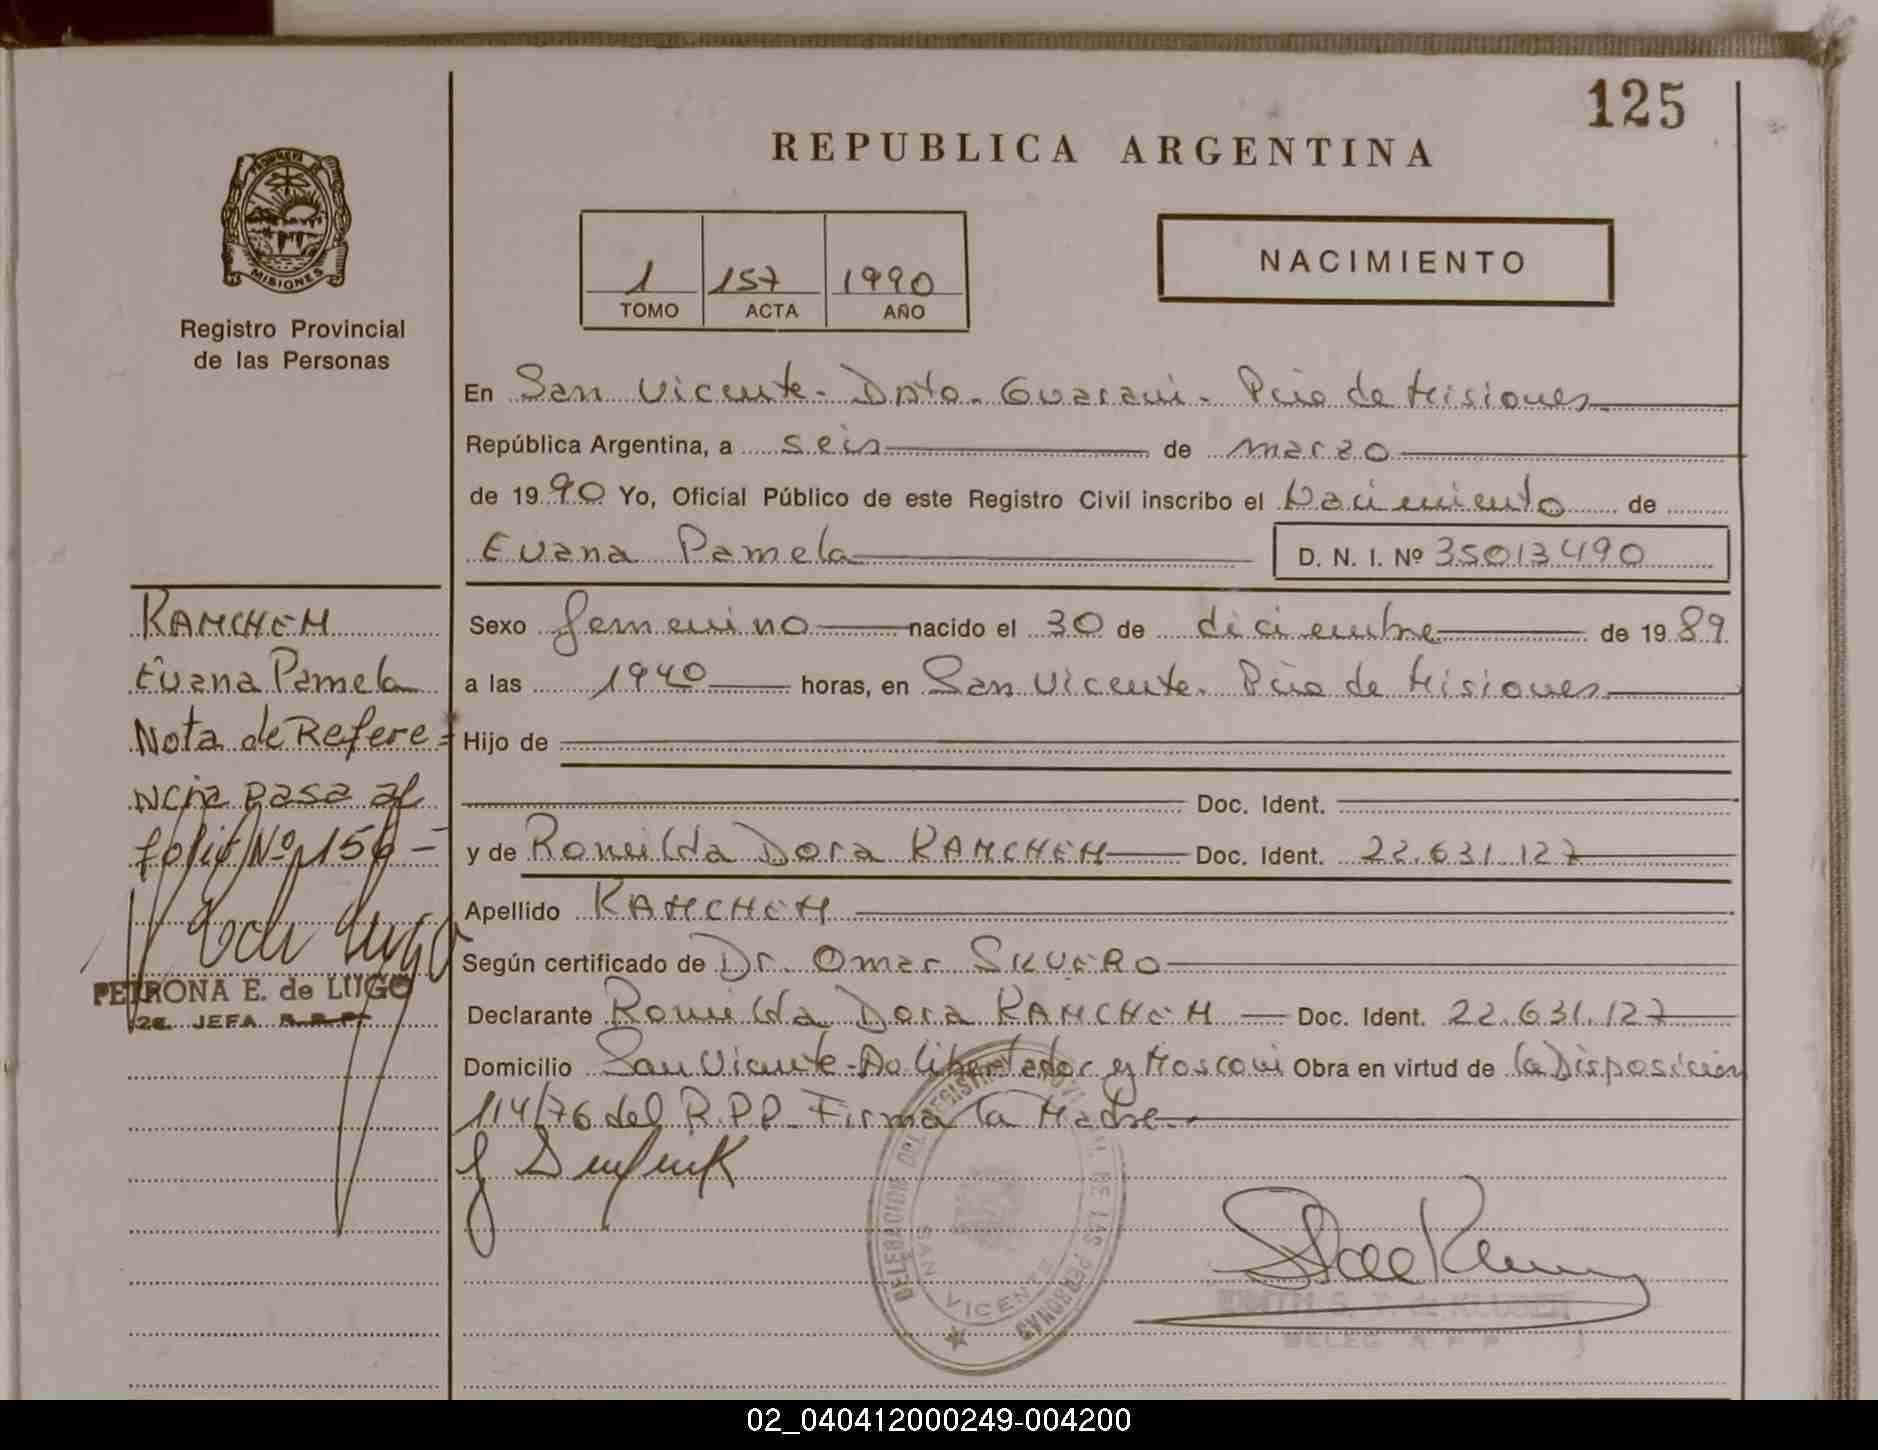 125
REPUBLICA ARGENTINA
MISIONES
Registro Provincial
de las Personas
1 157 1990
TOMO ACTA AÑO
NACIMIENTO
En San Vicente - Dpto. Guarani - Pcia de Misiones
República Argentina, a seis de marzo
de 1990 Yo, Oficial Público de este Registro Civil inscribo el Nacimiento de
Evana Pamela D. N. I. Nº 35013490
Sexo femenino nacido el 30 de diciembre de 1989
a las 1940 horas, en San Vicente - Pcia de Misiones
Hijo de
Doc. Ident.
y de Romilda Dora RAMCHEM Doc. Ident. 22.631.127
Apellido RAMCHEM
Según certificado de Dr. Omar SILVERO
Declarante Romilda Dora RAMCHEM Doc. Ident. 22.631.127
Domicilio San Vicente - Av Libertador y Mosconi Obra en virtud de la Disposicion
114/76 del R.P.P. Firma la Madre.-
RAMCHEM
Evana Pamela
Nota de Refere=
ncia pasa al
folio Nº 156 -
PETRONA E. de LUGO
2a. JEFA R.P.P.
DELEGACION DEL REGISTRO PROVINCIAL DE LAS PERSONAS
SAN VICENTE
02_040412000249-004200